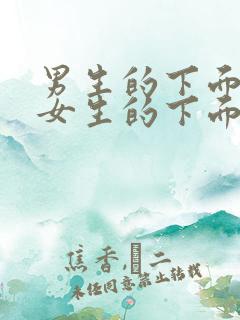 男生的下面
女生的下面
焦香,二
未经同意禁止转载